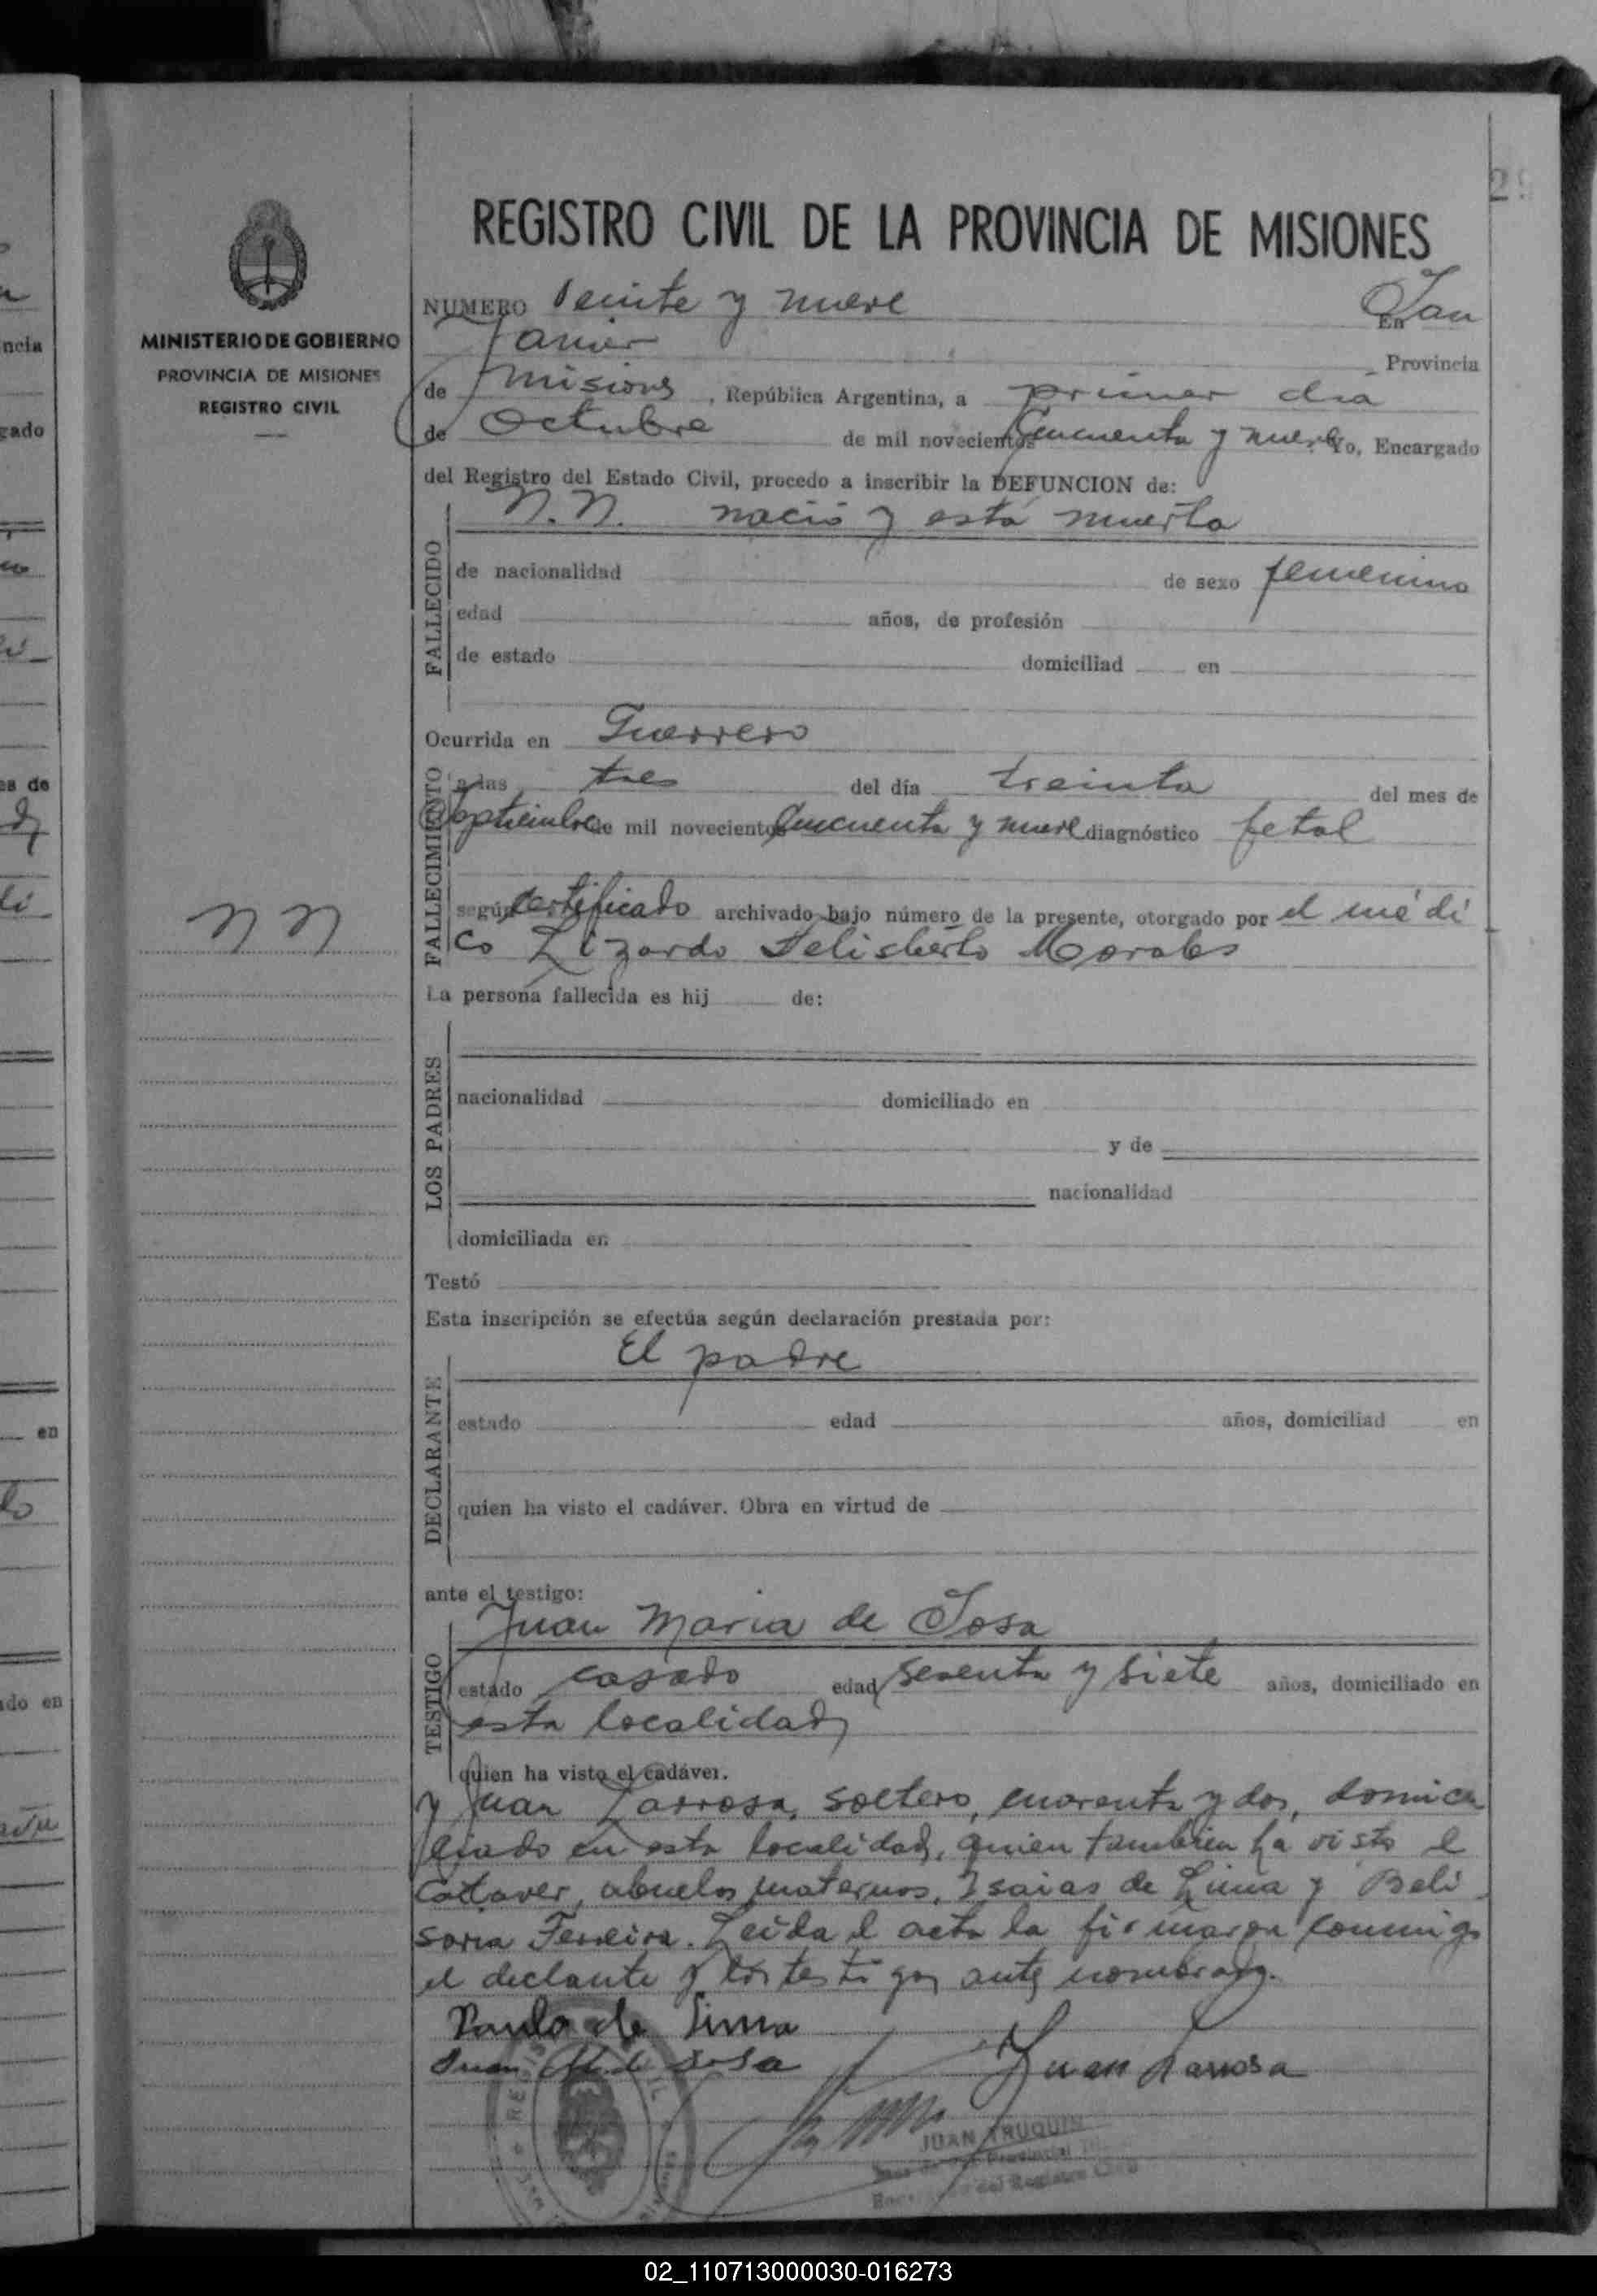 29
REGISTRO CIVIL DE LA PROVINCIA DE MISIONES
MINISTERIO DE GOBIERNO
PROVINCIA DE MISIONES
REGISTRO CIVIL
NUMERO Veinte y nueve En San
Javier Provincia
de Misiones, República Argentina, a primer dia
de Octubre de mil novecientos cincuenta y nueve Yo, Encargado
del Registro del Estado Civil, procedo a inscribir la DEFUNCION de:
FALLECIDO
N.N. nació y está muerta
de nacionalidad de sexo femenino
edad años, de profesión
de estado domiciliad en
Ocurrida en Guerrero
FALLECIMIENTO
a las tres del día treinta del mes de
Septiembre de mil novecientos cincuenta y nueve diagnóstico fetal
según certificado archivado bajo número de la presente, otorgado por el médi
co Lizardo Felisberto Morales
N N
La persona fallecida es hij de:
LOS PADRES
nacionalidad domiciliado en
y de
nacionalidad
domiciliada en
Testó
Esta inscripción se efectúa según declaración prestada por:
DECLARANTE
El padre
estado edad años, domiciliad en
quien ha visto el cadáver. Obra en virtud de
ante el testigo:
TESTIGO
Juan Maria de Sosa
estado casado edad y siete años, domiciliado en
esta localidad
quien ha visto el cadáver.
y Juan Larrosa, soltero, cuarenta y dos, domici
liado en esta localidad, quien tambien ha visto el
cadaver, abuelos maternos, Isaias de Lima y Beli
saria Ferreira. Leida el acta la firmaron conmigo
el declante y los testigos antes nombrados.
Paulo de Lima
Juan M. de Sosa Juan Larrosa
JUAN TRUQUIN
del Registro Civil
02_110713000030-016273